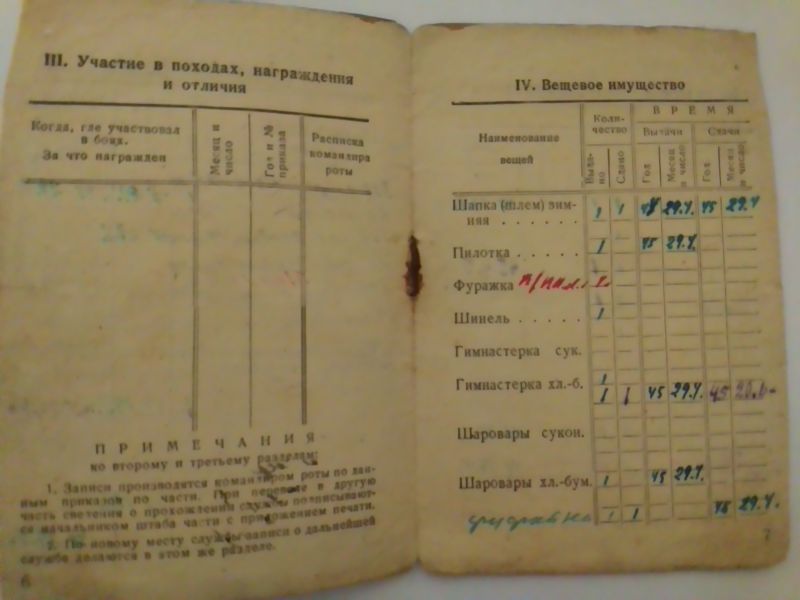 III. Участие в походах, награждения
и отличия
Когда, где участвовал
в боях.
За что награжден
Месяц и
число
Год и №
приказа
Расписка
командира
роты
ПРИМЕЧАНИЯ
ко второму и третьему разделам:
1. Записи производятся командиром роты по дан-
ным приказов по части. При переводе в другую
часть сведения о прохождении службы подписывают-
ся начальником штаба части с приложением печати.
2. По новому месту службы записи о дальнейшей
службе делаются в этом же разделе.
6
IV. Вещевое имущество
Наименование
вещей
Коли-
чество
ВРЕМЯ
Выдачи
Сдачи
Выда-
но
Сдано
Год
Месяц
и число
Год
Месяц
и число
Шапка (шлем) зим-
няя . . . . . . 1 1 29.4. 45 29.4
Пилотка . . . . . 1 45 29.4.
Фуражка
Шинель . . . . . 1
Гимнастерка сук.
Гимнастерка хл.-б. 1
1 1 45 29.4. 45
Шаровары сукон.
Шаровары хл.-бум. 1 45 29.4.
фуфайка 1 1 45 29.4.
7